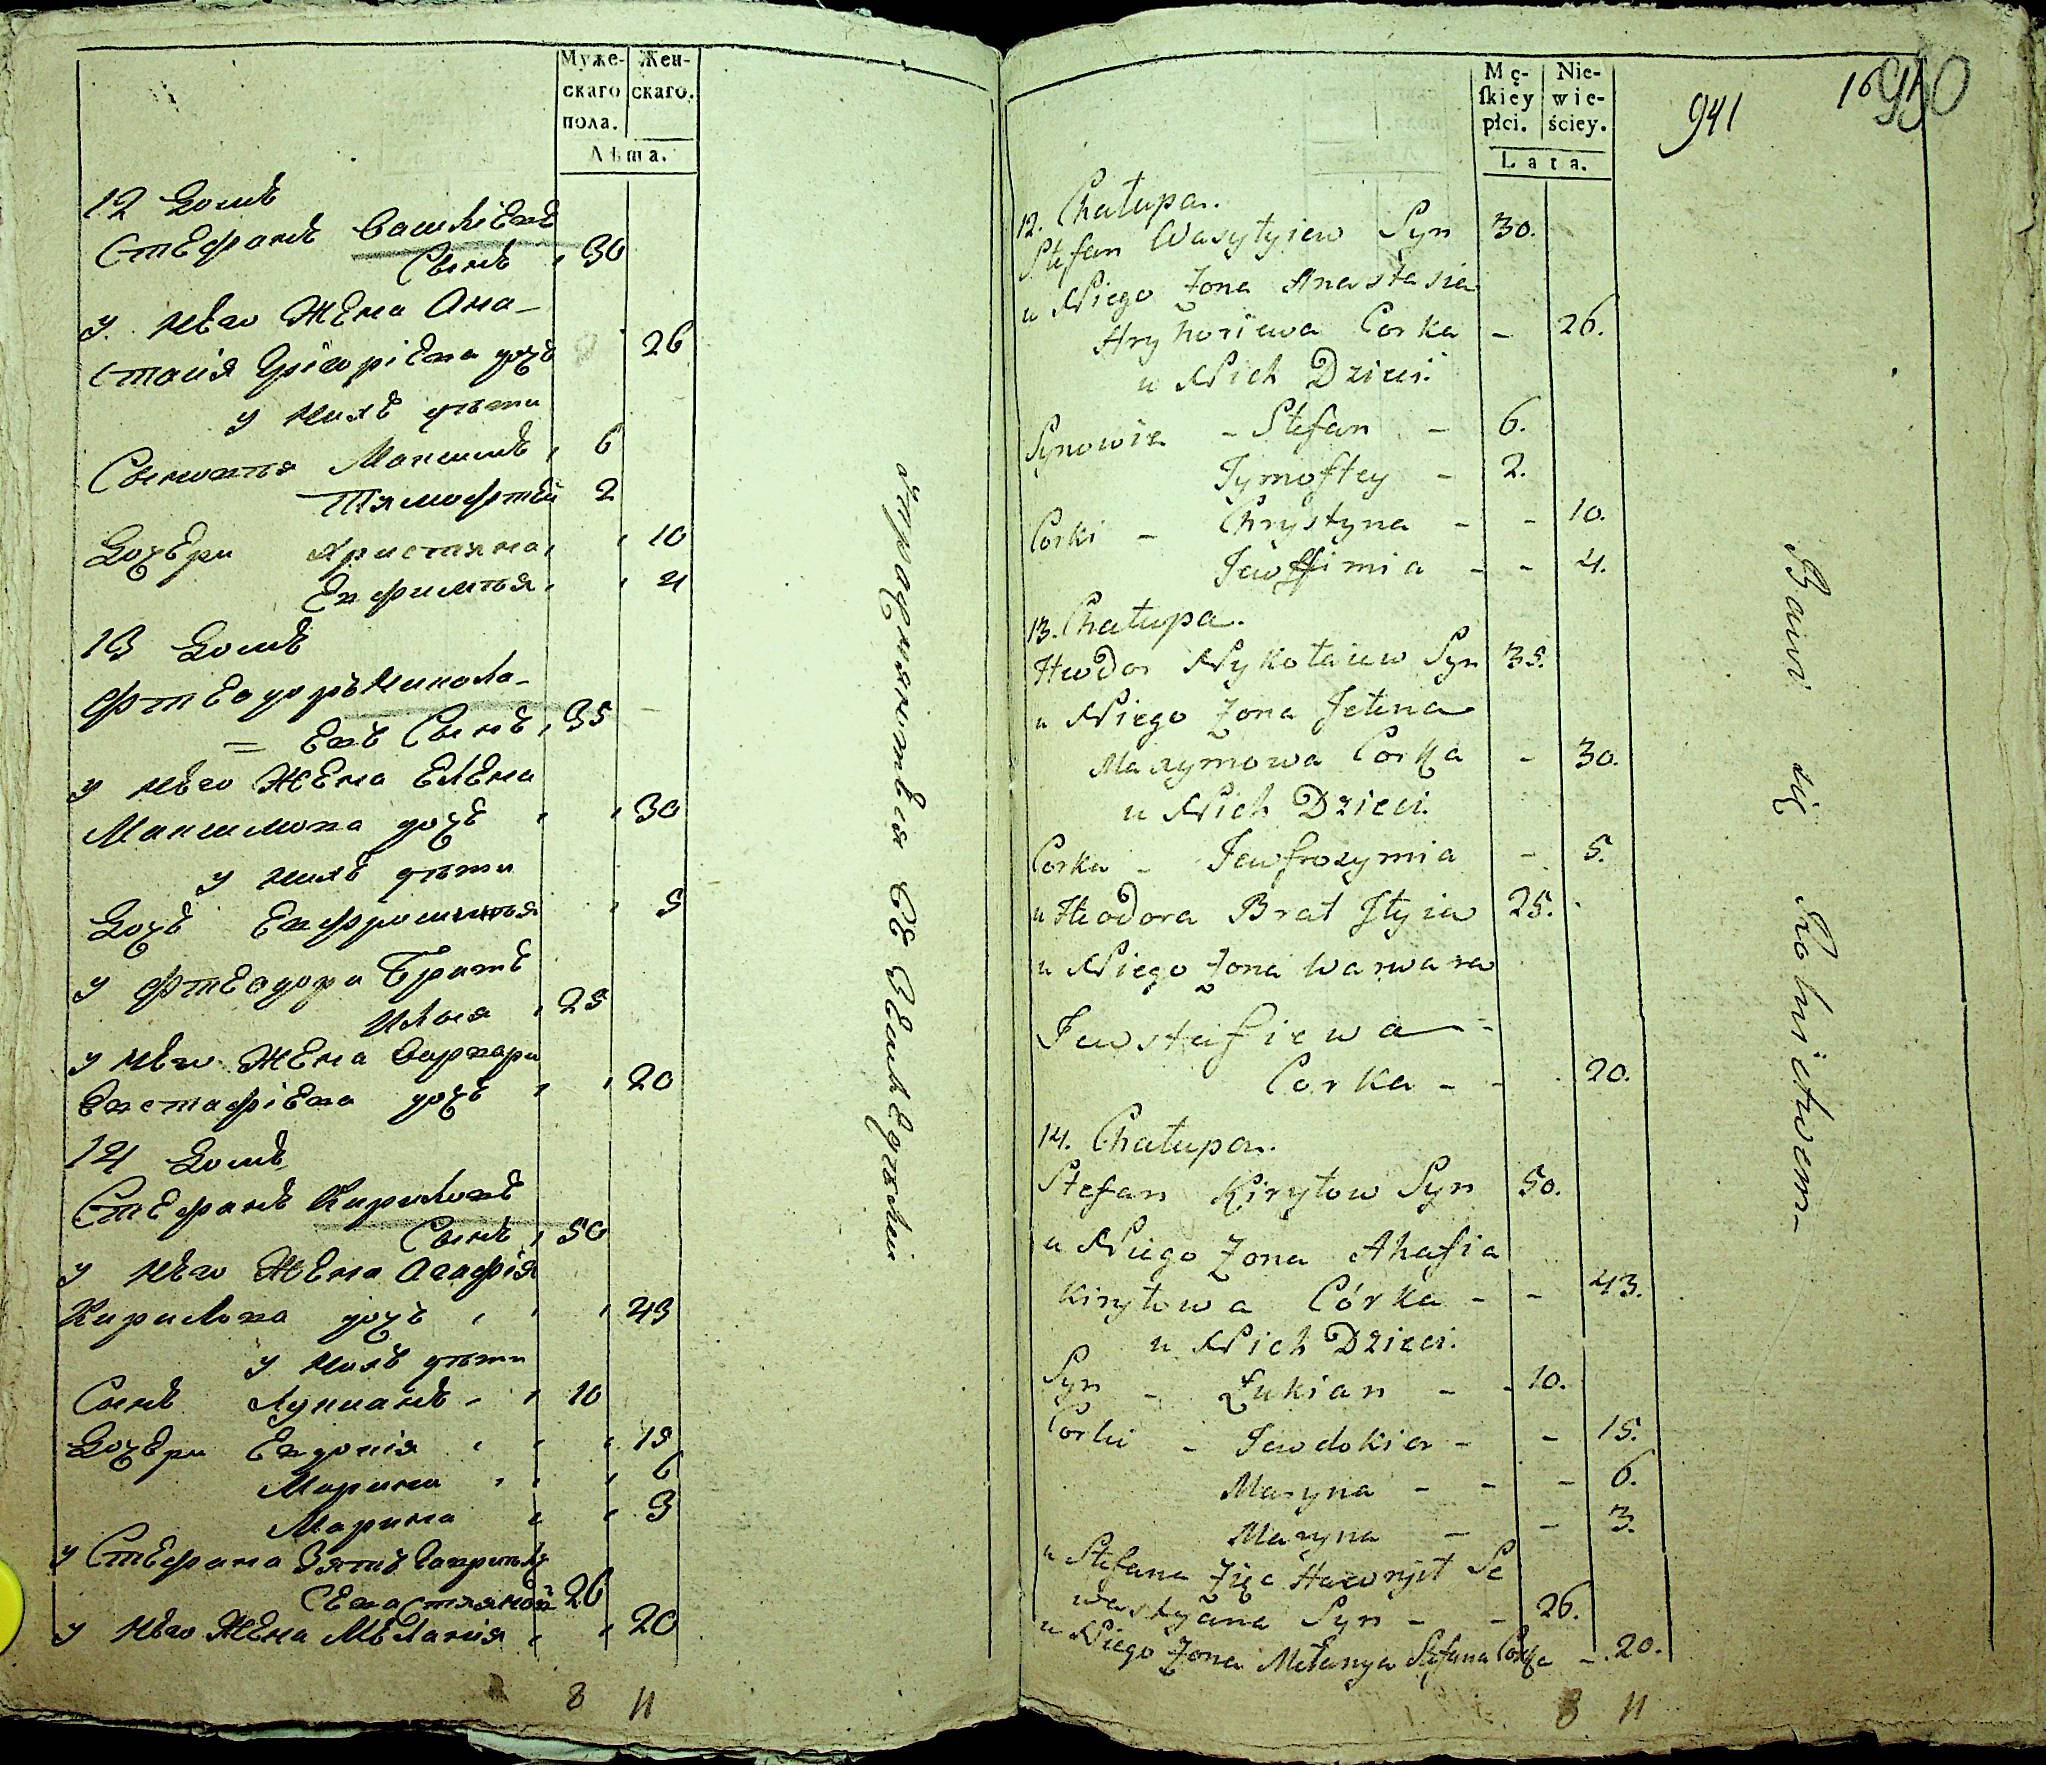 Муже- Жен-
скаго скаго.
пола.
Лѣта.
12 Домъ
Стефанъ Василіевъ
Сынъ 30
у него Жена Ана-
стасія Грігоріева дочъ 26
у нихъ дѣти
Сыновья Максимъ 6
Тимофтѣй 2
Дочери Христина 10
Евфимья 4
13 Домъ
Фтеодоръ Никола-
= евъ Сынъ 35
у него Жена Елена
Максимова дочъ 30
у нихъ дѣти
Дочъ Евфросинья 5
у Фтеодора Братъ
Илья 25
у него Жена Варвара
Евстафіева дочъ 20
14 Домъ
Стефанъ Кириловъ
Сынъ 50
у него Жена Агафія
Кирилова дочъ 43
у нихъ дѣти
Сынъ Лукианъ 10
Дочери Евдокія 15
Марина 6
Марина 3
у Стефана Зять Гаврило
Севастяновъ 26
у него Жена Меланія 20
8 11
упражняются въ Земледѣліи
Mę- Nie-
ſkiey wie-
płci. ściey.
Lata.
941
950
12. Chałupa.
Stefan Wasyłyiew Syn 30.
u Niego Żona Anastasia
Hryhoriewa Corka - 26.
u Nich Dzieci
Synowie - Stefan - 6.
Tymoftey - 2.
Corki - Chrystyna - - 10.
Jewffimia - - 4.
13. Chałupa.
Hteodor Nykołaiew Syn 35.
u Niego Żona Jełena
Maxymowa Corka - 30.
u Nich Dzieci.
Corka - Jewfrozymia - 5.
u Hteodora Brat Jłyia 25.
u Niego Żona Warwara
Jewstafiewa
Corka - - 20.
14. Chałupa.
Stefan Kiryłow Syn 50.
u Niego Żona Ahafia
Kiryłowa Córka - - 43.
u Nich Dzieci.
Syn - Łukian - - 10.
Corki - Jewdokia - - 15.
Maryna - - - 6.
Maryna - - 3.
u Stefana Zięć Hawryił Se
wastyana Syn - - 26.
u Niego Żona Mełanya Stefana Corka - 20.
8 11
Bawi się Rolnictwem -